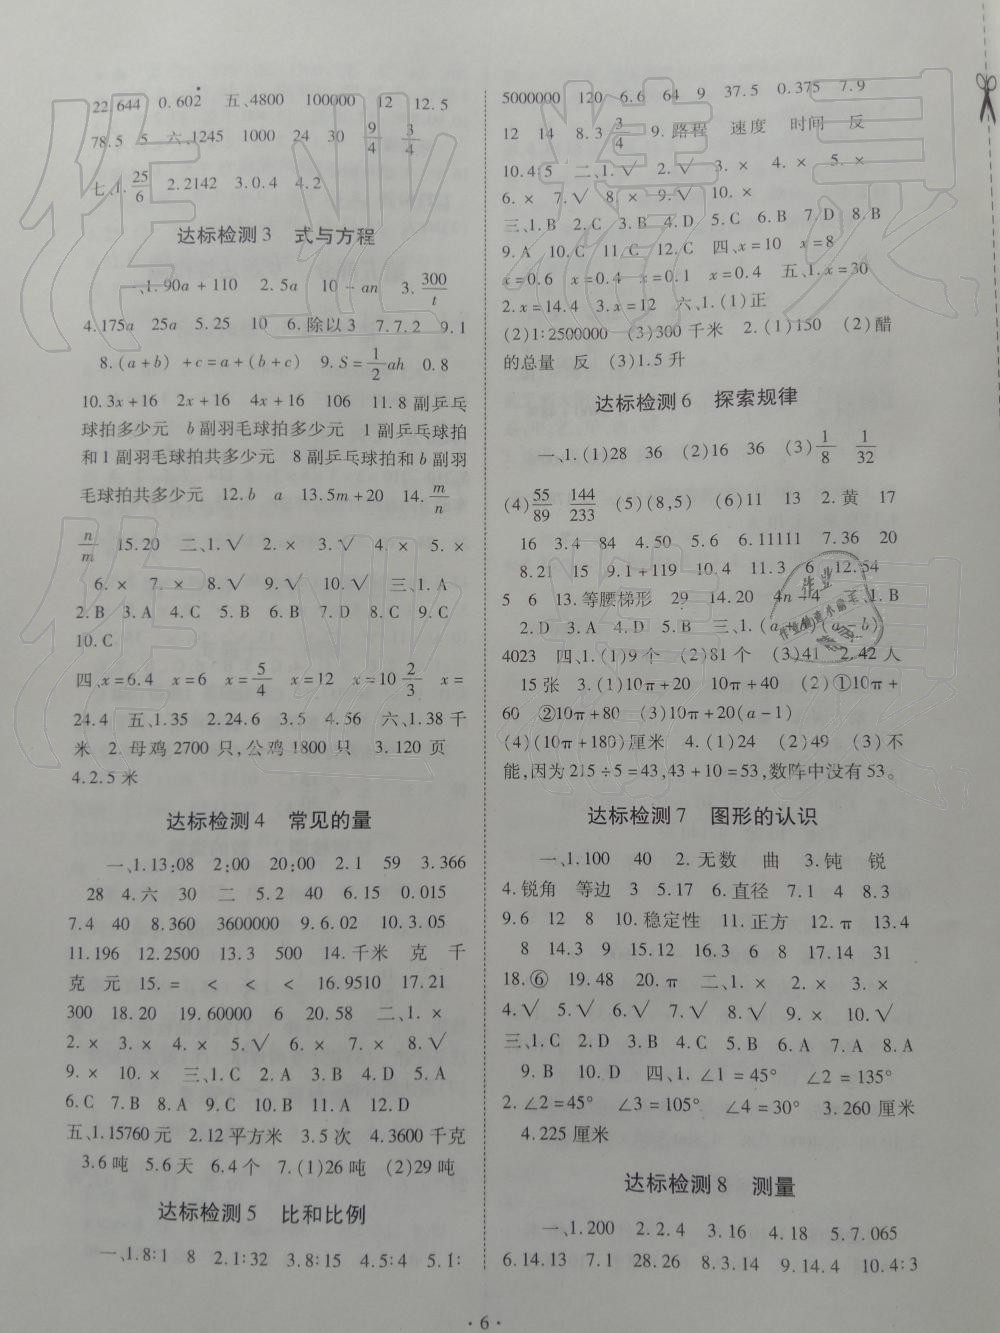 22.644 0.602̇ 五、4800 100000 12 12.5
78.5 5 六、1245 1000 24 30 9/4 3/4
七、1. 25/6 2.2142 3.0.4 4.2
达标检测3 式与方程
一、1.90a+110 2.5a 10-an 3. 300/t
4.175a 25a 5.25 10 6.除以3 7.7.2 9.1
8.(a+b)+c=a+(b+c) 9.S=1/2ah 0.8
10.3x+16 2x+16 4x+16 106 11.8副乒乓
球拍多少元 b副羽毛球拍多少元 1副乒乓球拍
和1副羽毛球拍共多少元 8副乒乓球拍和b副羽
毛球拍共多少元 12.b a 13.5m+20 14. m/n
n/m 15.20 二、1.√ 2.× 3.√ 4.× 5.×
6.× 7.× 8.√ 9.√ 10.√ 三、1.A
2.B 3.A 4.C 5.B 6.B 7.D 8.C 9.C
10.C
四、x=6.4 x=6 x=5/4 x=12 x=10 2/3 x=
24.4 五、1.35 2.24.6 3.5 4.56 六、1.38千
米 2.母鸡2700只,公鸡1800只 3.120页
4.2.5米
达标检测4 常见的量
一、1.13:08 2:00 20:00 2.1 59 3.366
28 4.六 30 二 5.2 40 6.15 0.015
7.4 40 8.360 3600000 9.6.02 10.3.05
11.196 12.2500 13.3 500 14.千米 克 千
克 元 15.= < < < 16.9510 17.21
300 18.20 19.60000 6 20.58 二、1.×
2.× 3.× 4.× 5.√ 6.× 7.× 8.√
9.× 10.× 三、1.C 2.A 3.B 4.D 5.A
6.C 7.B 8.A 9.C 10.B 11.A 12.D
五、1.15760元 2.12平方米 3.5次 4.3600千克
3.6吨 5.6天 6.4个 7.(1)26吨 (2)29吨
达标检测5 比和比例
一、1.8:1 8 2.1:32 3.8:15 4.5:4 5.1:
5000000 120 6.6 64 9 37.5 0.375 7.9
12 14 8.3 3/4 9.路程 速度 时间 反
10.4:5 二、1.√ 2.√ 3.× 4.× 5.×
6.× 7.√ 8.× 9.√ 10.×
三、1.B 2.C 3.B 4.D 5.C 6.B 7.D 8.B
9.A 10.C 11.C 12.C 四、x=10 x=8
x=0.6 x=0.4 x=0.1 x=0.4 五、1.x=30
2.x=14.4 3.x=12 六、1.(1)正
(2)1:2500000 (3)300千米 2.(1)150 (2)醋
的总量 反 (3)1.5升
达标检测6 探索规律
一、1.(1)28 36 (2)16 36 (3)1/8 1/32
(4)55/89 144/233 (5)(8,5) (6)11 13 2.黄 17
16 3.4 84 4.50 5.6 6.11111 7.36 20
8.21 15 9.1+119 10.4 11.3 6 12.54
5 6 13.等腰梯形 29 14.20 4n+4 二、1.B
2.D 3.A 4.D 5.B 三、1.(a+4)(a-b)
4023 四、1.(1)9个 (2)81个 (3)41 2.42人
15张 3.(1)10π+20 10π+40 (2)①10π+
60 ②10π+80 (3)10π+20(a-1)
(4)(10π+180)厘米 4.(1)24 (2)49 (3)不
能,因为215÷5=43,43+10=53,数阵中没有53。
达标检测7 图形的认识
一、1.100 40 2.无数 曲 3.钝 锐
4.锐角 等边 3 5.17 6.直径 7.1 4 8.3
9.6 12 8 10.稳定性 11.正方 12.π 13.4
8 14.3 9 15.12 16.3 6 8 17.14 31
18.⑥ 19.48 20.π 二、1.× 2.× 3.×
4.√ 5.√ 6.√ 7.√ 8.√ 9.× 10.√
三、1.C 2.D 3.B 4.C 5.B 6.A 7.A 8.A
9.B 10.D 四、1.∠1=45° ∠2=135°
2.∠2=45° ∠3=105° ∠4=30° 3.260厘米
4.225厘米
达标检测8 测量
一、1.200 2.2.4 3.16 4.18 5.7.065
6.14.13 7.1 28.26 8.3.14 9.14.4 10.4:3
·6·